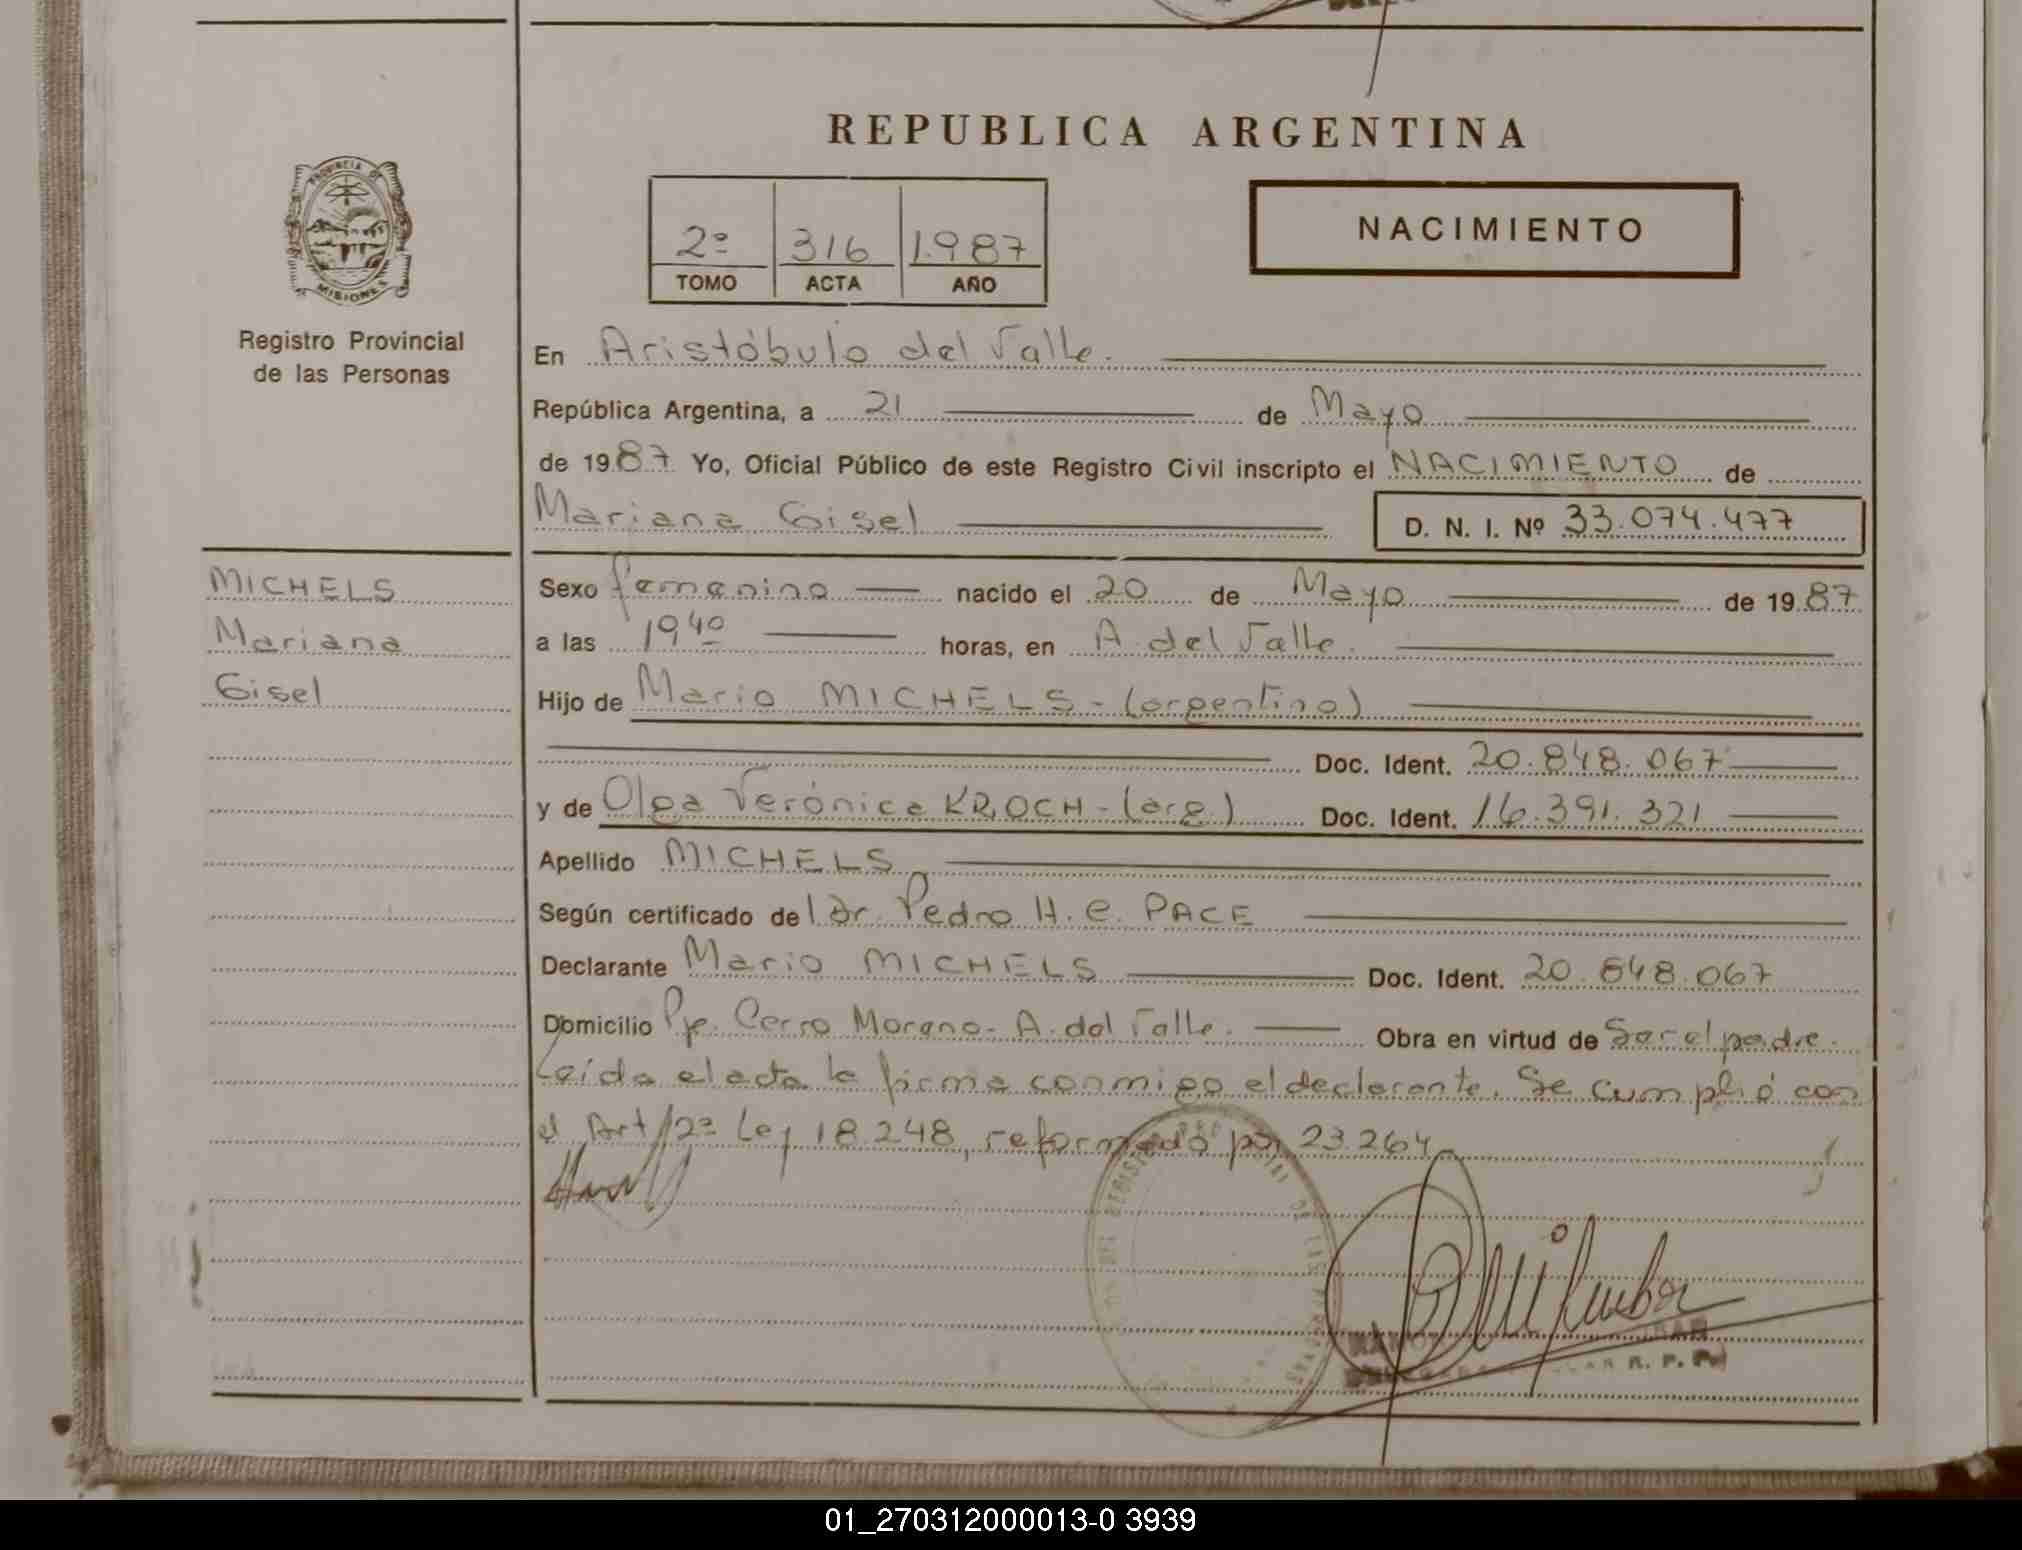 REPUBLICA ARGENTINA
PROVINCIA DE
MISIONES
Registro Provincial
de las Personas
2º 316 1.987
TOMO ACTA AÑO
NACIMIENTO
En Aristóbulo del Valle.
República Argentina, a 21 de Mayo
de 1987 Yo, Oficial Público de este Registro Civil inscripto el NACIMIENTO de
Mariana Gisel
D. N. I. Nº 33.074.477
MICHELS
Mariana
Gisel
Sexo femenino nacido el 20 de Mayo de 1987
a las 19 40 horas, en A. del Valle.
Hijo de Mario MICHELS - (argentino)
Doc. Ident. 20.848.067
y de Olga Verónica KROCH - (arg.) Doc. Ident. 16.391.321
Apellido MICHELS
Según certificado del Dr. Pedro H. C. PACE
Declarante Mario MICHELS Doc. Ident. 20.848.067
Domicilio Pje. Cerro Moreno - A. del Valle. Obra en virtud de Ser el padre.
Leída el acta la firma conmigo el declarante. Se cumplió con
el Art/2º Ley 18.248, reformado por 23.264
R. P. P.
01_270312000013-0 3939